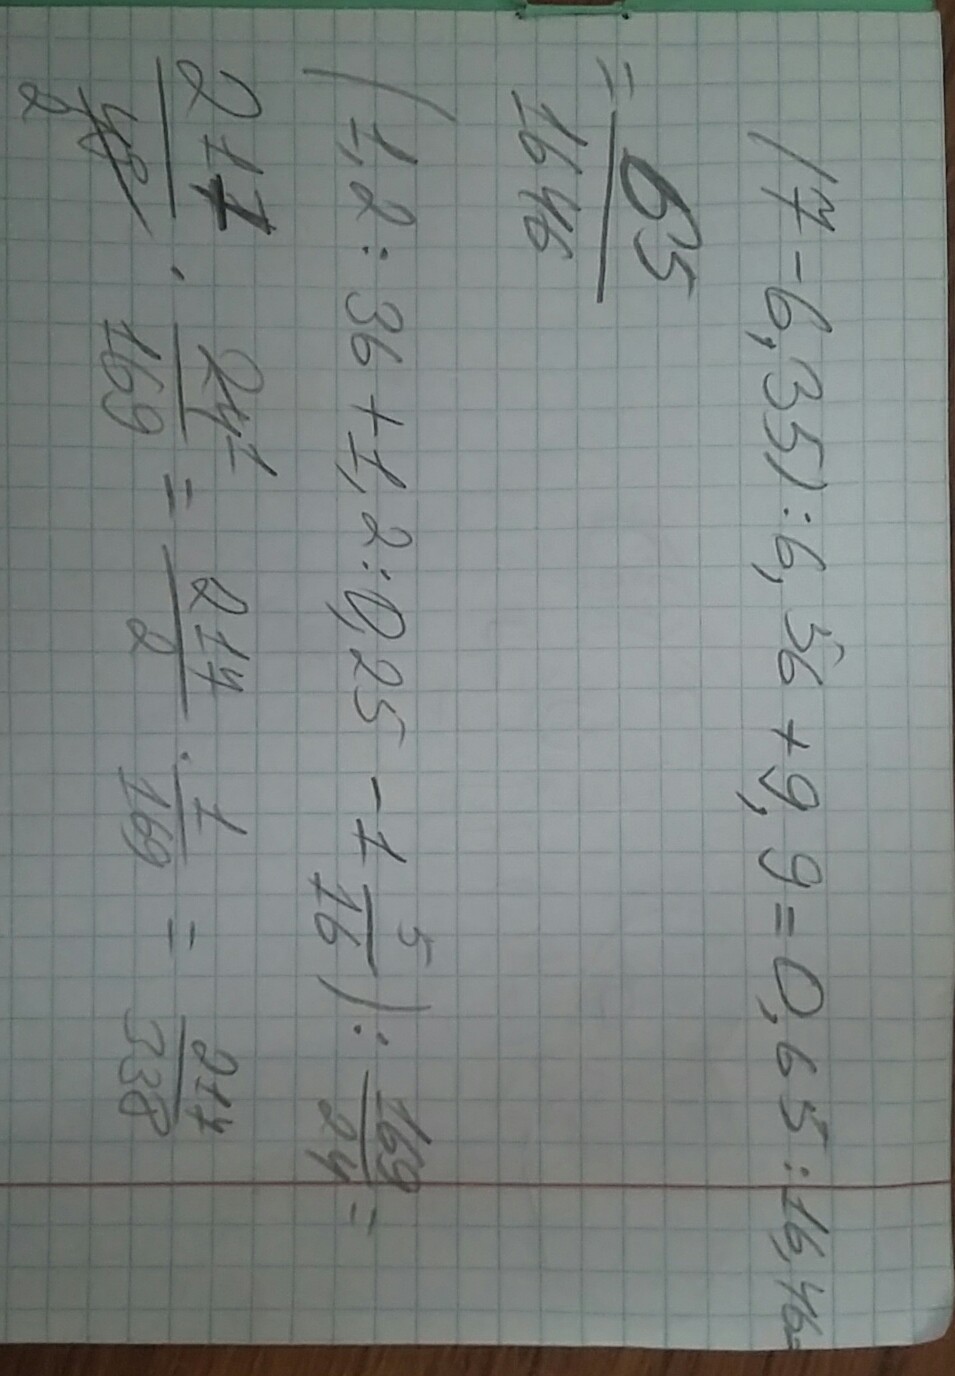 (7-6,35):6,56+9,9=0,65:16,46=
=65/1646
(1,2:36+1,2:0,25-1 5/16):169/24=
217/48 2 · 24 1/169=217/2 · 1/169=217/338